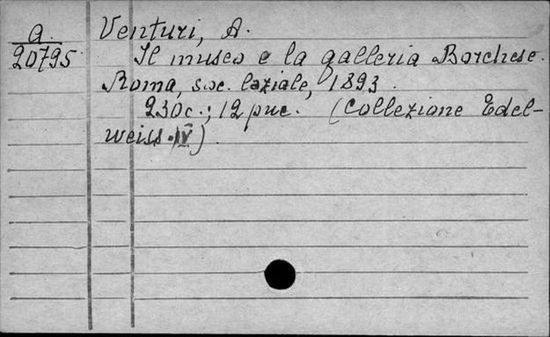 a. Venturi, A.
20795 Il museo e la galleria Borchese.
Roma, soc. laziale, 1893.
230c.; 12 рис. (Collezione Edel-
weiss. IV)